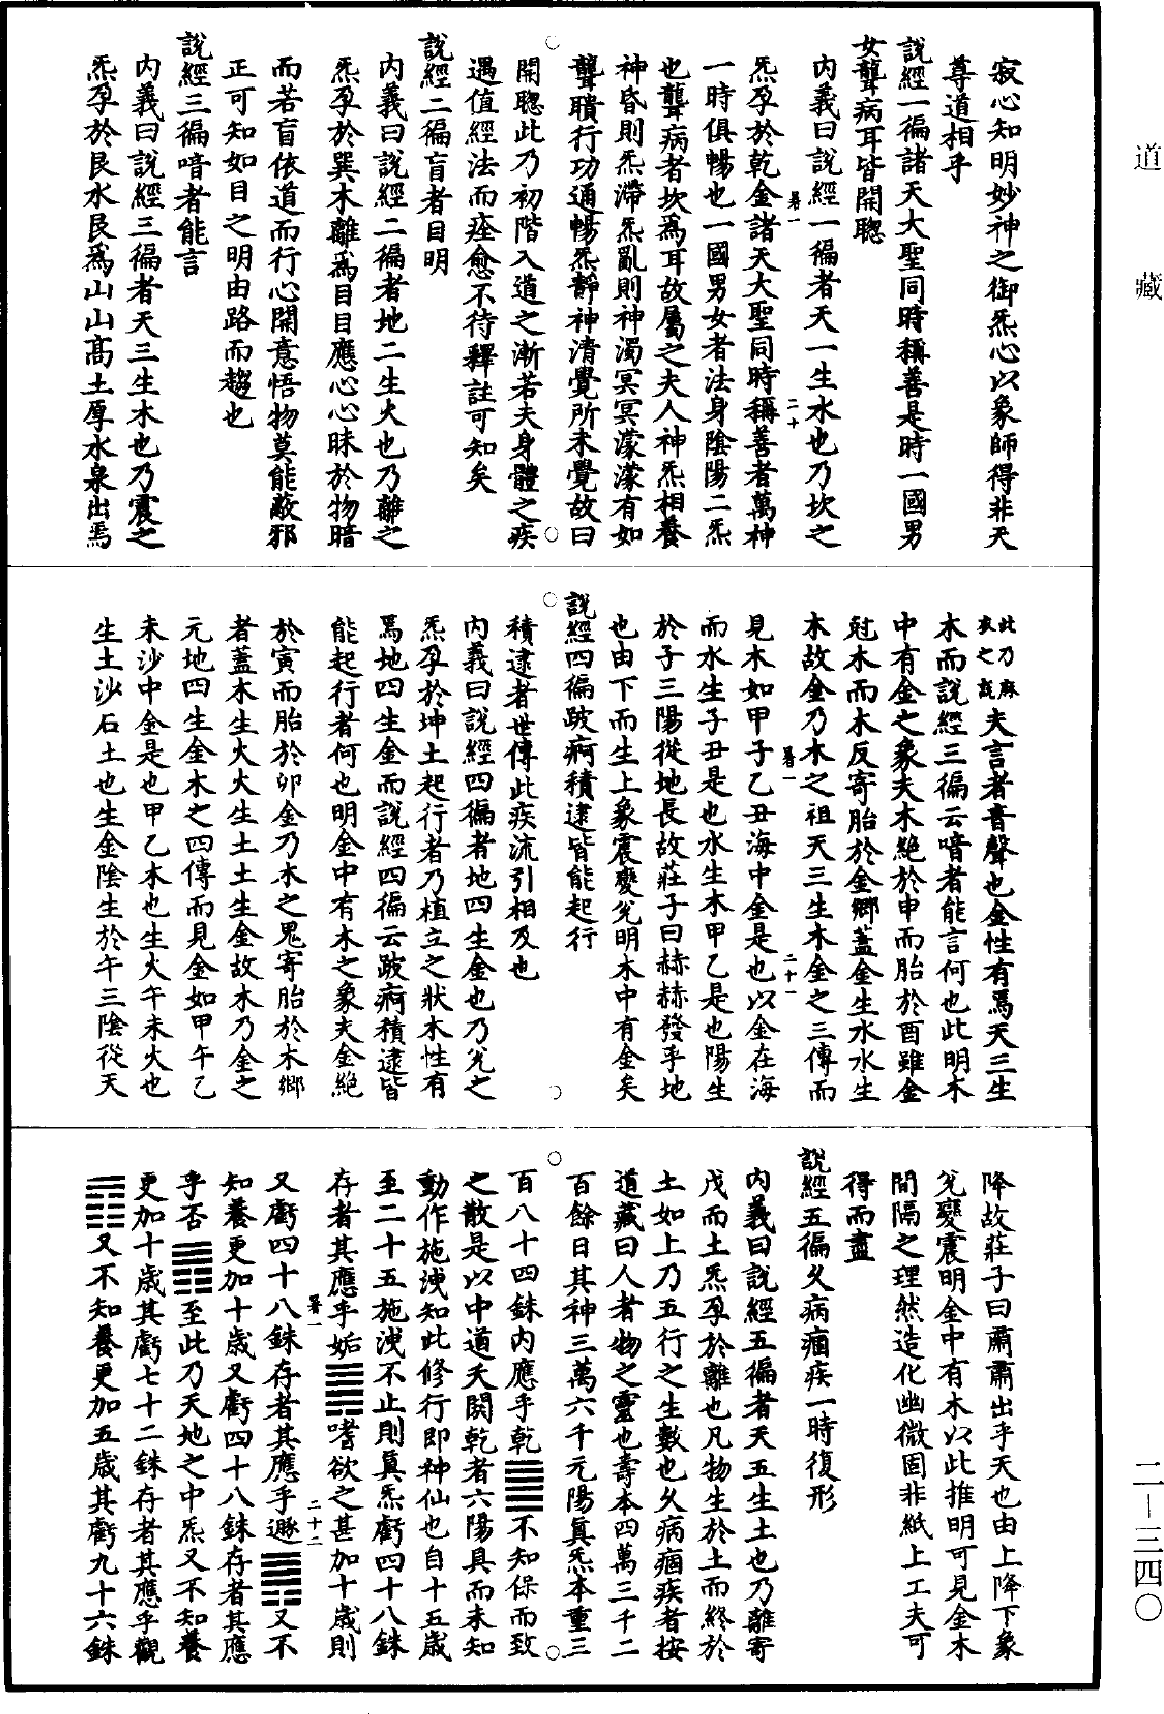 道藏
寂心知明妙神之御炁心以象師得非天
尊道相乎
說經一徧諸天大聖同時稱善是時一國男
女聾病耳皆開聰
內義曰說經一徧者天一生水也乃坎之
炁孕於乾金諸天大聖同時稱善者萬神
一時俱暢也一國男女者法身陰陽二炁
也聾病者坎爲耳故屬之夫人神炁相養
神昏則炁滯炁亂則神濁冥冥濛濛有如
聾聵行功通暢炁靜神清覺所未覺故曰
開聰此乃初階入道之漸若夫身體之疾
遇值經法而痊愈不待釋註可知矣
說經二徧盲者目明
內義曰說經二徧者地二生火也乃離之
炁孕於巽木離爲目目應心心昧於物暗
而若盲依道而行心開意悟物莫能蔽邪
正可知如目之明由路而趨也
說經三徧喑者能言
內義曰說經三徧者天三生木也乃震之
炁孕於艮水艮爲山山高土厚水泉出焉
此乃麻衣之說夫言者音聲也金性有焉天三生
木而說經三徧云喑者能言何也此明木
中有金之象夫木絕於申而胎於酉雖金
尅木而木反寄胎於金鄉蓋金生水水生
木故金乃木之祖天三生木金之三傳而
見木如甲子乙丑海中金是也以金在海
而水生子丑是也水生木甲乙是也陽生
於子三陽從地長故莊子曰赫赫發乎地
也由下而生上象震變兊明木中有金矣
說經四徧跛痾積逮皆能起行
積逮者世傳此疾流引相及也
內義曰說經四徧者地四生金也乃兊之
炁孕於坤土起行者乃植立之狀木性有
焉地四生金而說經四徧云跛痾積逮皆
能起行者何也明金中有木之象夫金絕
於寅而胎於卯金乃木之鬼寄胎於木鄉
者蓋木生火火生土土生金故木乃金之
元地四生金木之四傳而見金如甲午乙
未沙中金是也甲乙木也生火午未火也
生土沙石土也生金陰生於午三陰從天
降故莊子曰肅肅出乎天也由上降下象
兊變震明金中有木以此推明可見金木
間隔之理然造化幽微固非紙上工夫可
得而盡
說經五徧久病痼疾一時復形
內義曰說經五徧者天五生土也乃離寄
戊而土炁孕於離也凡物生於土而終於
土如上乃五行之生數也久病痼疾者按
道藏曰人者物之靈也壽本四萬三千二
百餘日其神三萬六千元陽眞炁本重三
百八十四銖內應乎乾䷀不知保而致
之散是以中道夭閼乾者六陽具而未知
動作施洩知此修行即神仙也自十五歲
至二十五施洩不止則眞炁虧四十八銖
存者其應乎姤䷫嗜欲之甚加十歲則
又虧四十八銖存者其應乎遯䷠又不
知養更加十歲又虧四十八銖存者其應
乎否䷋至此乃天地之中炁又不知養
更加十歲其虧七十二銖存者其應乎觀
䷓又不知養更加五歲其虧九十六銖
暑一 二十
暑一 二十一
暑一 二十二
二—三四〇